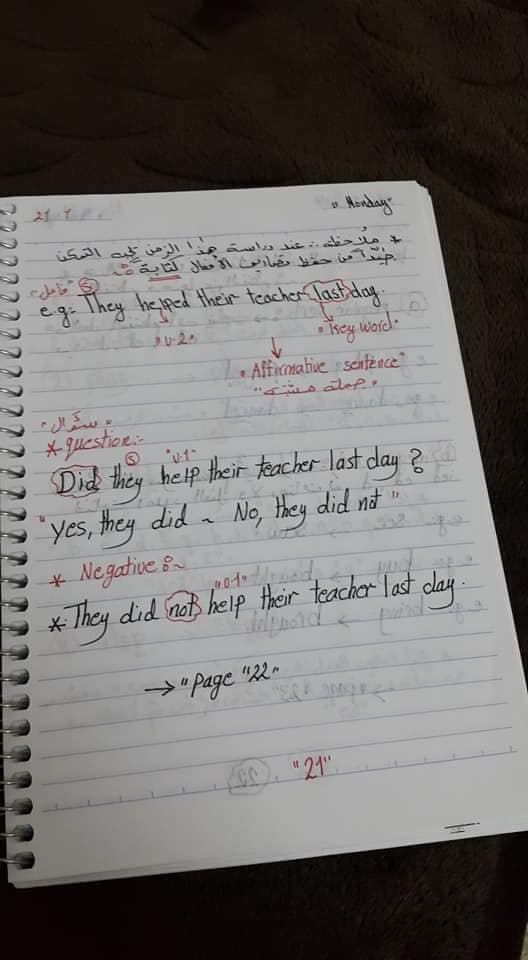 21 "Monday"
* ملاحظه:- عند دراسة هذا الزمن يجب التمكن
جيّداً من حفظ تصاريف الأفعال كتابةً
"فاعل" S
e.g:- They helped their teacher last day.
"v.2" "Key word"
"Affirmative sentence"
"جملة مثبته"
"سؤال"
* question:-
S "v.1"
Did they help their teacher last day?
"yes, they did ~ No, they did not"
* Negative :~
"v.1"
* They did not help their teacher last day.
→ "Page "22"
"21"